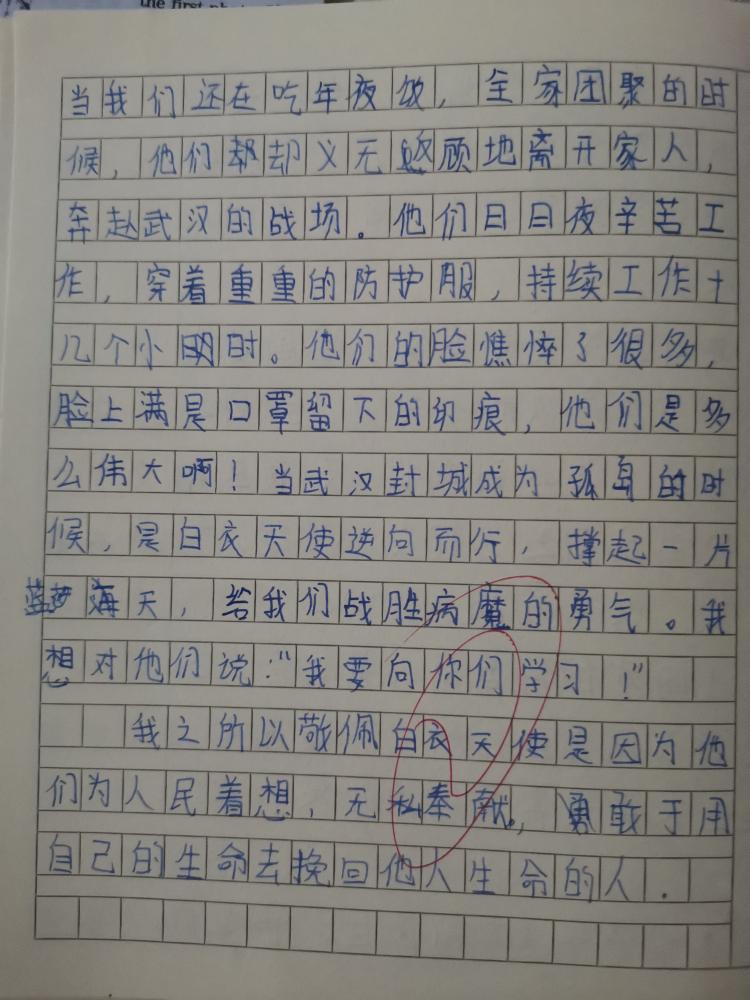 the first
当我们还在吃年夜饭，全家团聚的时
候，他们都却义无反顾地离开家人，
奔赴武汉的战场。他们日日夜辛苦工
作，穿着重重的防护服，持续工作十
几个小时。他们的脸憔悴了很多，
脸上满是口罩留下的印痕，他们是多
么伟大啊！当武汉封城成为孤岛的时
候，是白衣天使逆向而行，撑起一片
蓝天，给我们战胜病魔的勇气。我
想对他们说："我要向你们学习！"
我之所以敬佩白衣天使是因为他
们为人民着想，无私奉献，勇敢于用
自己的生命去挽回他人生命的人.